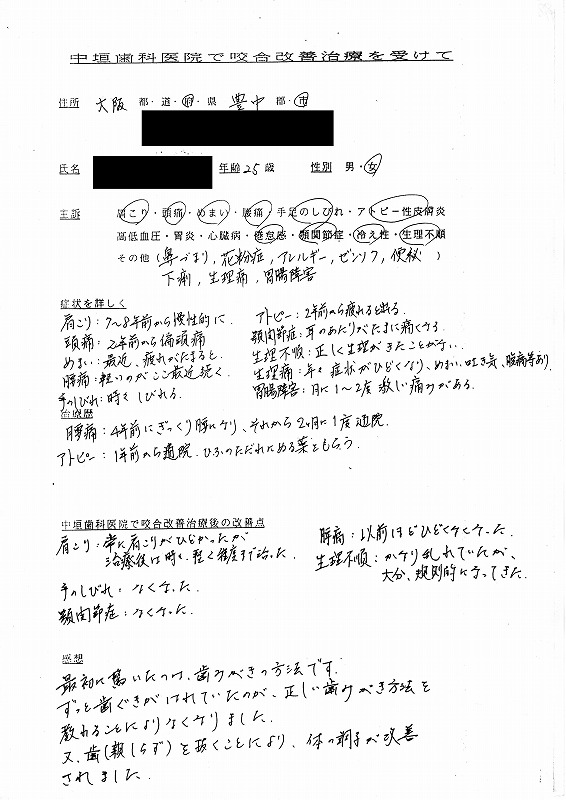 中垣歯科医院で咬合改善治療を受けて
住所 大阪 都・道・府・県 豊中 郡・市
氏名 年齢 25 歳 性別 男・女
主訴 肩こり・頭痛・めまい・腰痛・手足のしびれ・アトピー性皮膚炎
高低血圧・胃炎・心臓病・倦怠感・顎関節症・冷え性・生理不順
その他(鼻づまり, 花粉症, アレルギー, ゼンソク, 便秘)
下痢, 生理痛, 胃腸障害
症状を詳しく
肩こり:7~8年前から慢性的に.
頭痛:2年前から偏頭痛
めまい:最近、疲れがたまると.
腰痛:軽いのがここ最近続く.
手のしびれ:時々しびれる.
アトピー:2年前から疲れると出る.
顎関節症:耳のあたりがたまに痛くなる.
生理不順:正しく生理がきたことがない.
生理痛:年々症状がひどくなり、めまい、吐き気、腹痛等あり
胃腸障害:月に1~2度激しい痛みがある.
治療歴
腰痛:4年前にぎっくり腰になり、それから2ヶ月に1度通院.
アトピー:1年前から通院. ひふのただれにぬる薬をもらう.
中垣歯科医院で咬合改善治療後の改善点
肩こり:常に肩こりがひどかったが
治療後は時々、軽く程度まで治った.
手のしびれ:なくなった.
顎関節症:なくなった.
腰痛:以前ほどひどくなくなった.
生理不順:かなり乱れていたが、
大分、規則的になってきた.
感想
最初に驚いたのは、歯みがきの方法です.
ずっと歯ぐきがはれていたのが、正しい歯みがき方法を
教わることによりなくなりました.
又、歯(親しらず)を抜くことにより、体の調子が改善
されました.